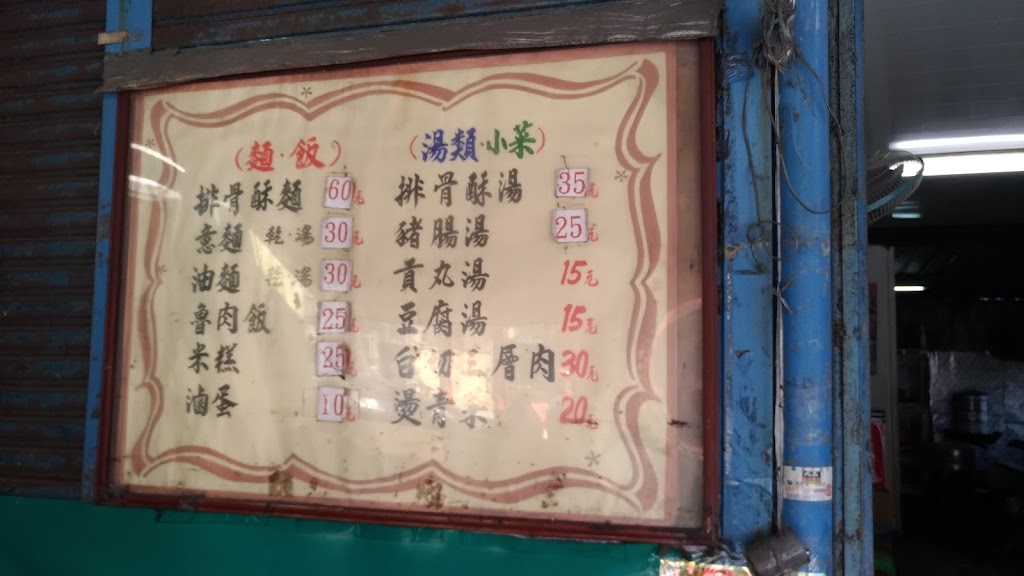 (麵·飯)
排骨酥麵 60元
意麵 乾·湯 30元
油麵 乾·湯 30元
魯肉飯 25元
米糕 25元
滷蛋 10元
(湯類·小菜)
排骨酥湯 35元
豬腸湯 25元
貢丸湯 15元
豆腐湯 15元
白切三層肉 30元
燙青菜 20元